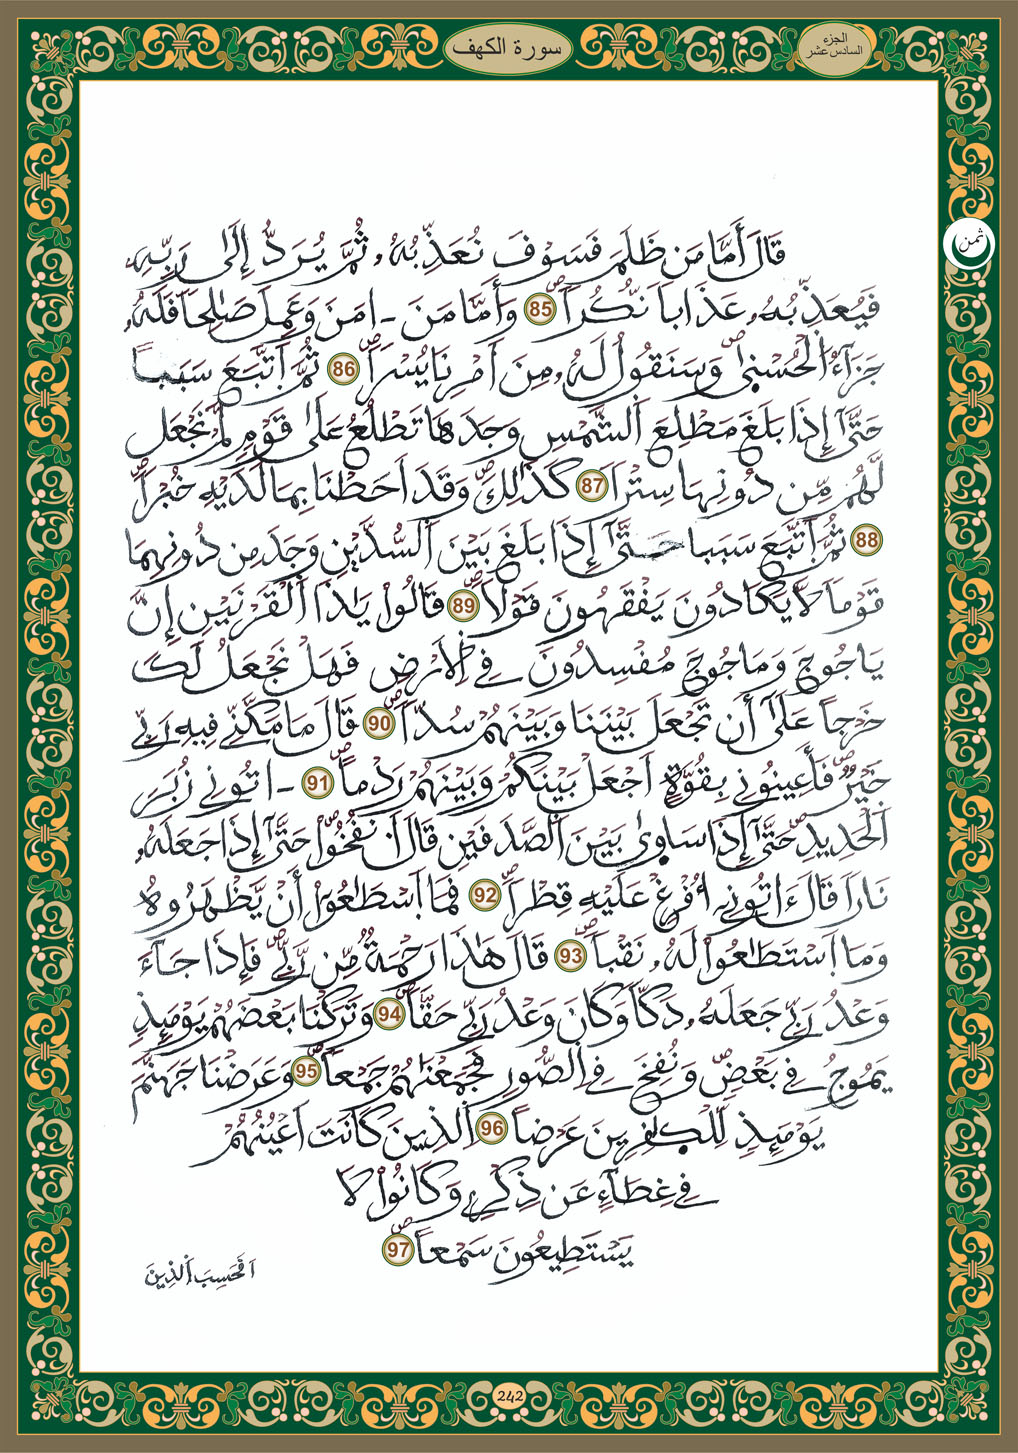 سورة الكهف
الجزء
السادس عشر
ثمن
قَالَ أَمَّا مَن ظَلَمَ فَسَوْفَ نُعَذِّبُهُۥ ثُمَّ يُرَدُّ إِلَىٰ رَبِّهِۦ
فَيُعَذِّبُهُۥ عَذَاباً نُّكُراً 85 وَأَمَّا مَنَ ـامَنَ وَعَمِلَ صَٰلِحاً فَلَهُۥ
جَزَآءُ اُ۬لْحُسْنۭيٰ وَسَنَقُولُ لَهُۥ مِنَ اَمْرِنَا يُسْراً 86 ثُمَّ اَ۪تَّبَعَ سَبَباً
حَتَّىٰٓ إِذَا بَلَغَ مَطْلِعَ اَ۬لشَّمْسِ وَجَدَهَا تَطْلُعُ عَلَىٰ قَوْمٍ لَّمْ نَجْعَل
لَّهُم مِّن دُونِهَا سِتْراً 87 كَذَٰلِكَ وَقَدَ اَحَطْنَا بِمَا لَدَيْهِ خُبْراً
88 ثُمَّ اَ۪تَّبَعَ سَبَباً حَتَّىٰٓ إِذَا بَلَغَ بَيْنَ اَ۬لسُّدَّيْنِ وَجَدَ مِن دُونِهِمَا
قَوْماً لَّا يَكَادُونَ يَفْقَهُونَ قَوْلاً 89 قَالُواْ يَٰذَا اَ۬لْقَرْنَيْنِ إِنَّ
يَاجُوجَ وَمَاجُوجَ مُفْسِدُونَ فِے اِ۬لَارْضِ فَهَلْ نَجْعَلُ لَكَ
خَرْجاً عَلَىٰٓ أَن تَجْعَلَ بَيْنَنَا وَبَيْنَهُمْ سُدّاً 90 قَالَ مَا مَكَّنِّے فِيهِ رَبِّے
خَيْرٌ فَأَعِينُونِے بِقُوَّةٍ اَجْعَلْ بَيْنَكُمْ وَبَيْنَهُمْ رَدْماً 91 ـاتُونِے زُبَرَ
اَ۬لْحَدِيدِ حَتَّىٰٓ إِذَا سَاوۭيٰ بَيْنَ اَ۬لصَّدَفَيْنِ قَالَ اَ۟نفُخُواْ حَتَّىٰٓ إِذَا جَعَلَهُۥ
نَاراً قَالَ ءَاتُونِے أُفْرِغْ عَلَيْهِ قِطْراً 92 فَمَا اَ۪سْطَٰعُوٓاْ أَنْ يَّظْهَرُوهُ
وَمَا اَ۪سْتَطَٰعُواْ لَهُۥ نَقْباً 93 قَالَ هَٰذَا رَحْمَةٌ مِّن رَّبِّے فَإِذَا جَآءَ
وَعْدُ رَبِّے جَعَلَهُۥ دَكّاً وَكَانَ وَعْدُ رَبِّے حَقّاً 94 وَتَرَكْنَا بَعْضَهُمْ يَوْمَئِذٍ
يَمُوجُ فِے بَعْضٍ وَنُفِخَ فِے اِ۬لصُّورِ فَجَمَعْنَٰهُمْ جَمْعاً 95 وَعَرَضْنَا جَهَنَّمَ
يَوْمَئِذٍ لِّلْكٰ۪فِرِينَ عَرْضاً 96 اَ۬لذِينَ كَانَتَ اَعْيُنُهُمْ
فِے غِطَآءٍ عَن ذِكْرِے وَكَانُواْ لَا
يَسْتَطِيعُونَ سَمْعاً 97
اَفَحَسِبَ اَ۬لذِينَ
242